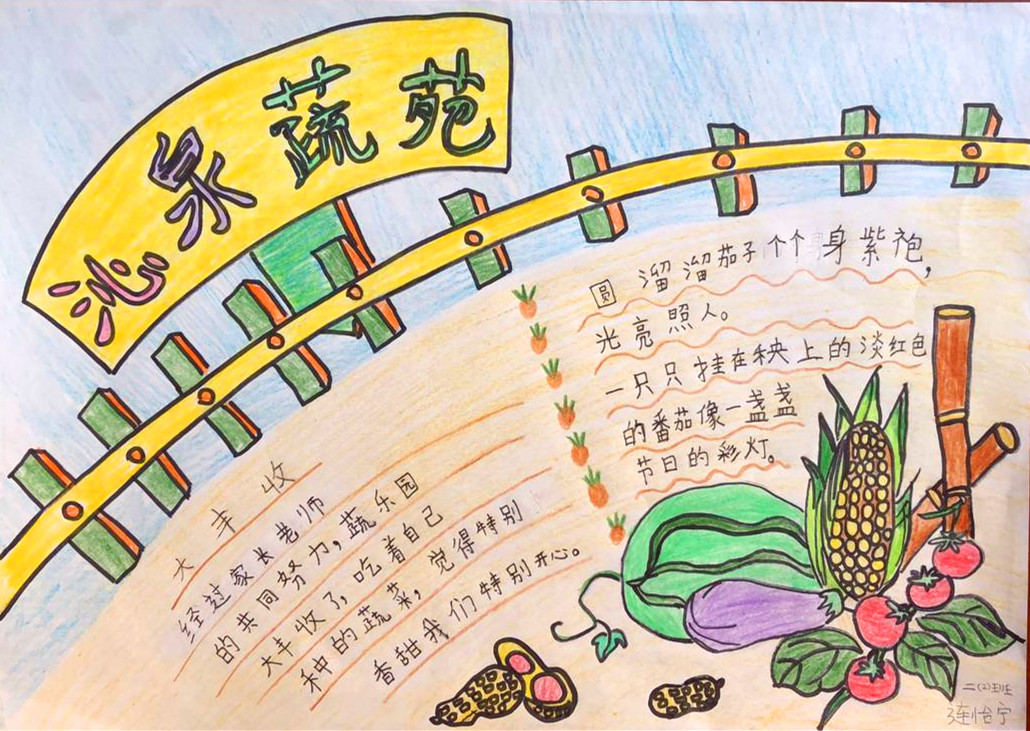 沁泉蔬苑
圆溜溜茄子个个身紫袍，
光亮照人。
一只只挂在秧上的淡红色
的番茄像一盏盏
节日的彩灯。
大丰收
经过家长老师
的共同努力，蔬乐园
大丰收了，吃着自己
种的蔬菜，觉得特别
香甜我们特别开心。
二(2)班
连怡宁